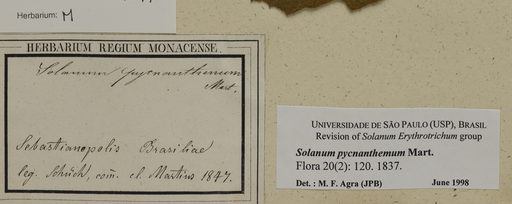 Herbarium: M
HERBARIUM REGIUM MONACENSE.
Solanum pycnanthemum
Mart.
Sebastianopolis Brasiliae
leg. Schüch, com. cl. Martius 1847.
UNIVERSIDADE DE SÃO PAULO (USP), BRASIL
Revision of Solanum Erythrotrichum group
Solanum pycnanthemum Mart.
Flora 20(2): 120. 1837.
Det. : M. F. Agra (JPB) June 1998